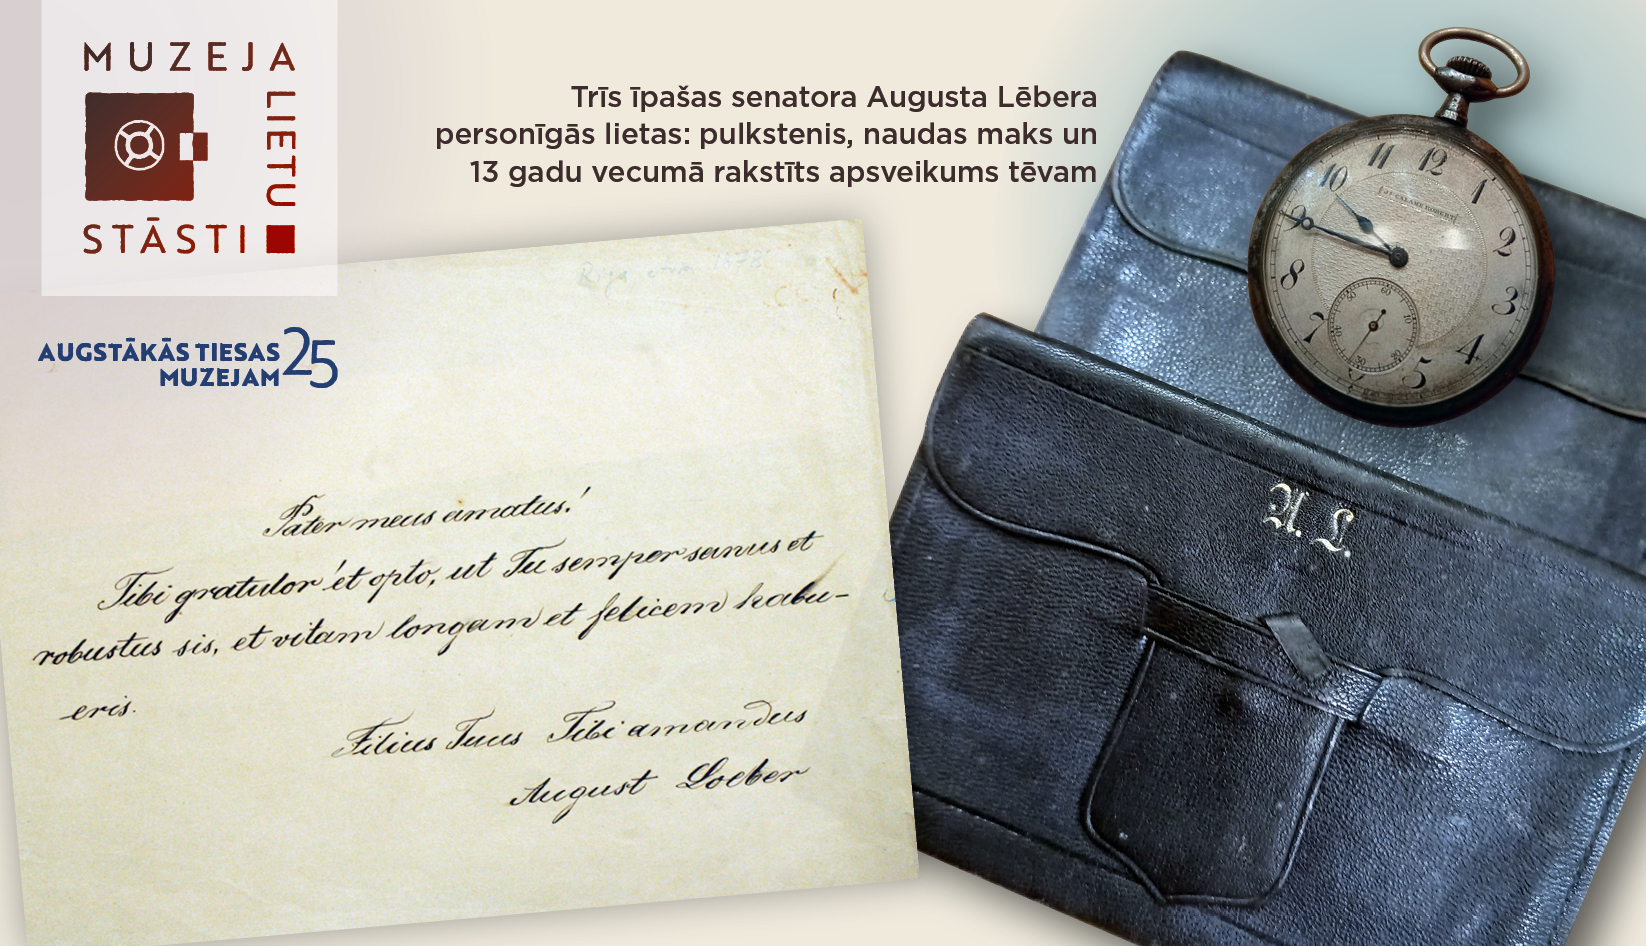 MUZEJA
LIETU
STĀSTI
AUGSTĀKĀS TIESAS
MUZEJAM 25
Trīs īpašas senatora Augusta Lēbera
personīgās lietas: pulkstenis, naudas maks un
13 gadu vecumā rakstīts apsveikums tēvam
Pater meus amatus!
Tibi gratulor et opto, ut Tu semper sanus et
robustus sis, et vitam longam et felicem habu-
eris.
Filius Tuus Tibi amandus
August Loeber
A. L.
11 12 1 2 3 4 5 7 8 9 10
CALAME ROBERT
60